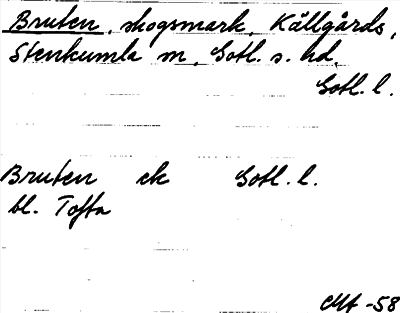 Bruten, skogsmark, Källgårds,
Stenkumla sn, Gotl. s. hd.
Gotl. l.
Bruten ek Gotl. l.
bl. Tofta
-58